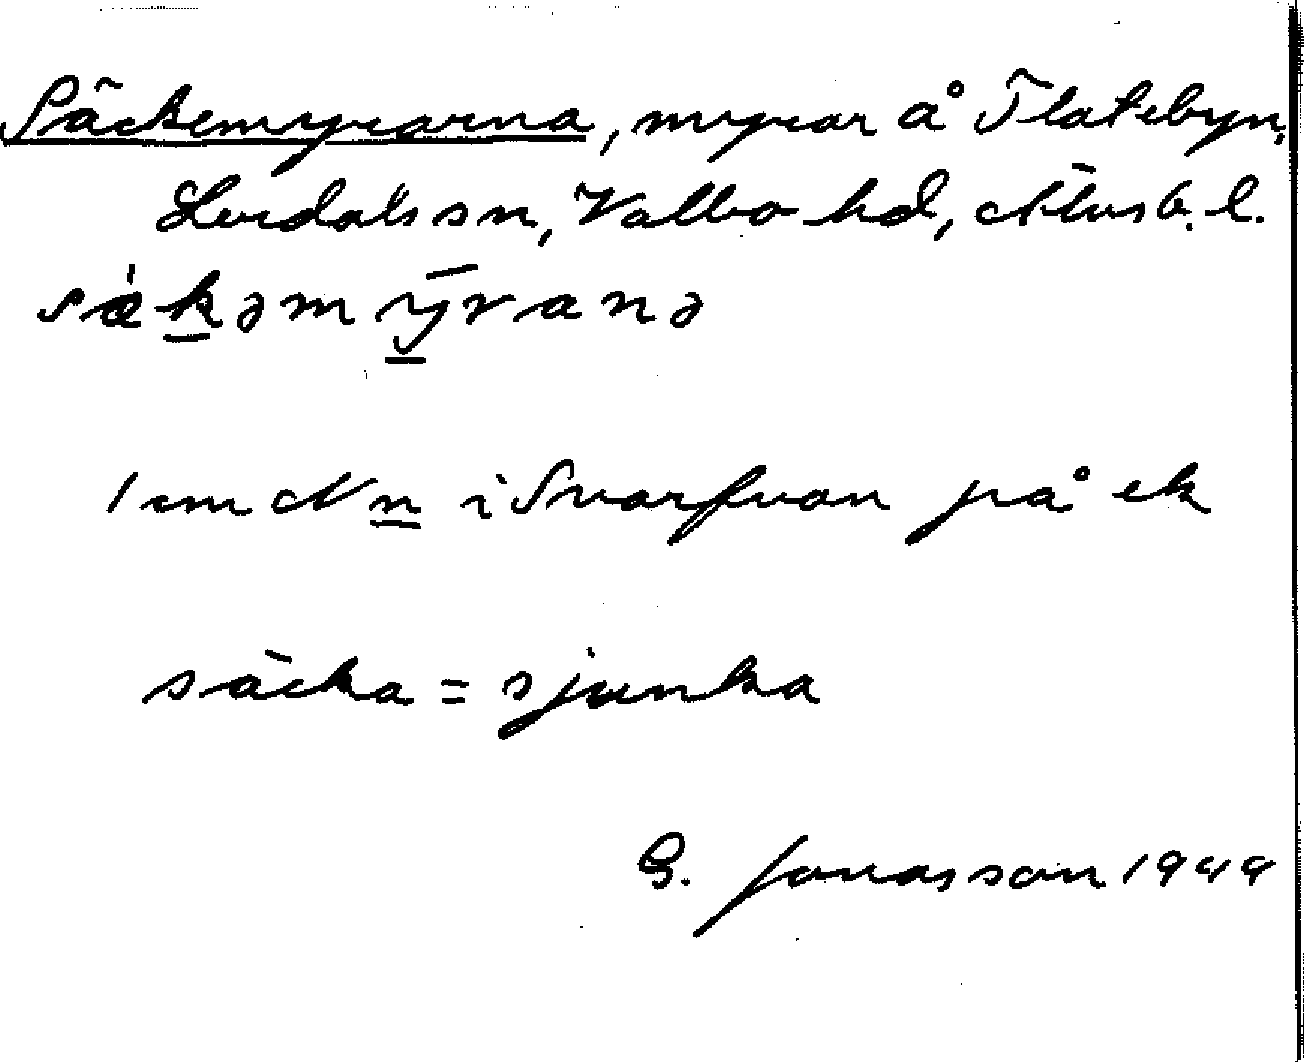 Säckemyrarna, myrar å Flatebyn,
Lerdals sn, Valbo hd, Älvsb. l.
sækəmȳranə
1 cm N n i Svarfvan på ek
säcka = sjunka
G. Jonasson 1944